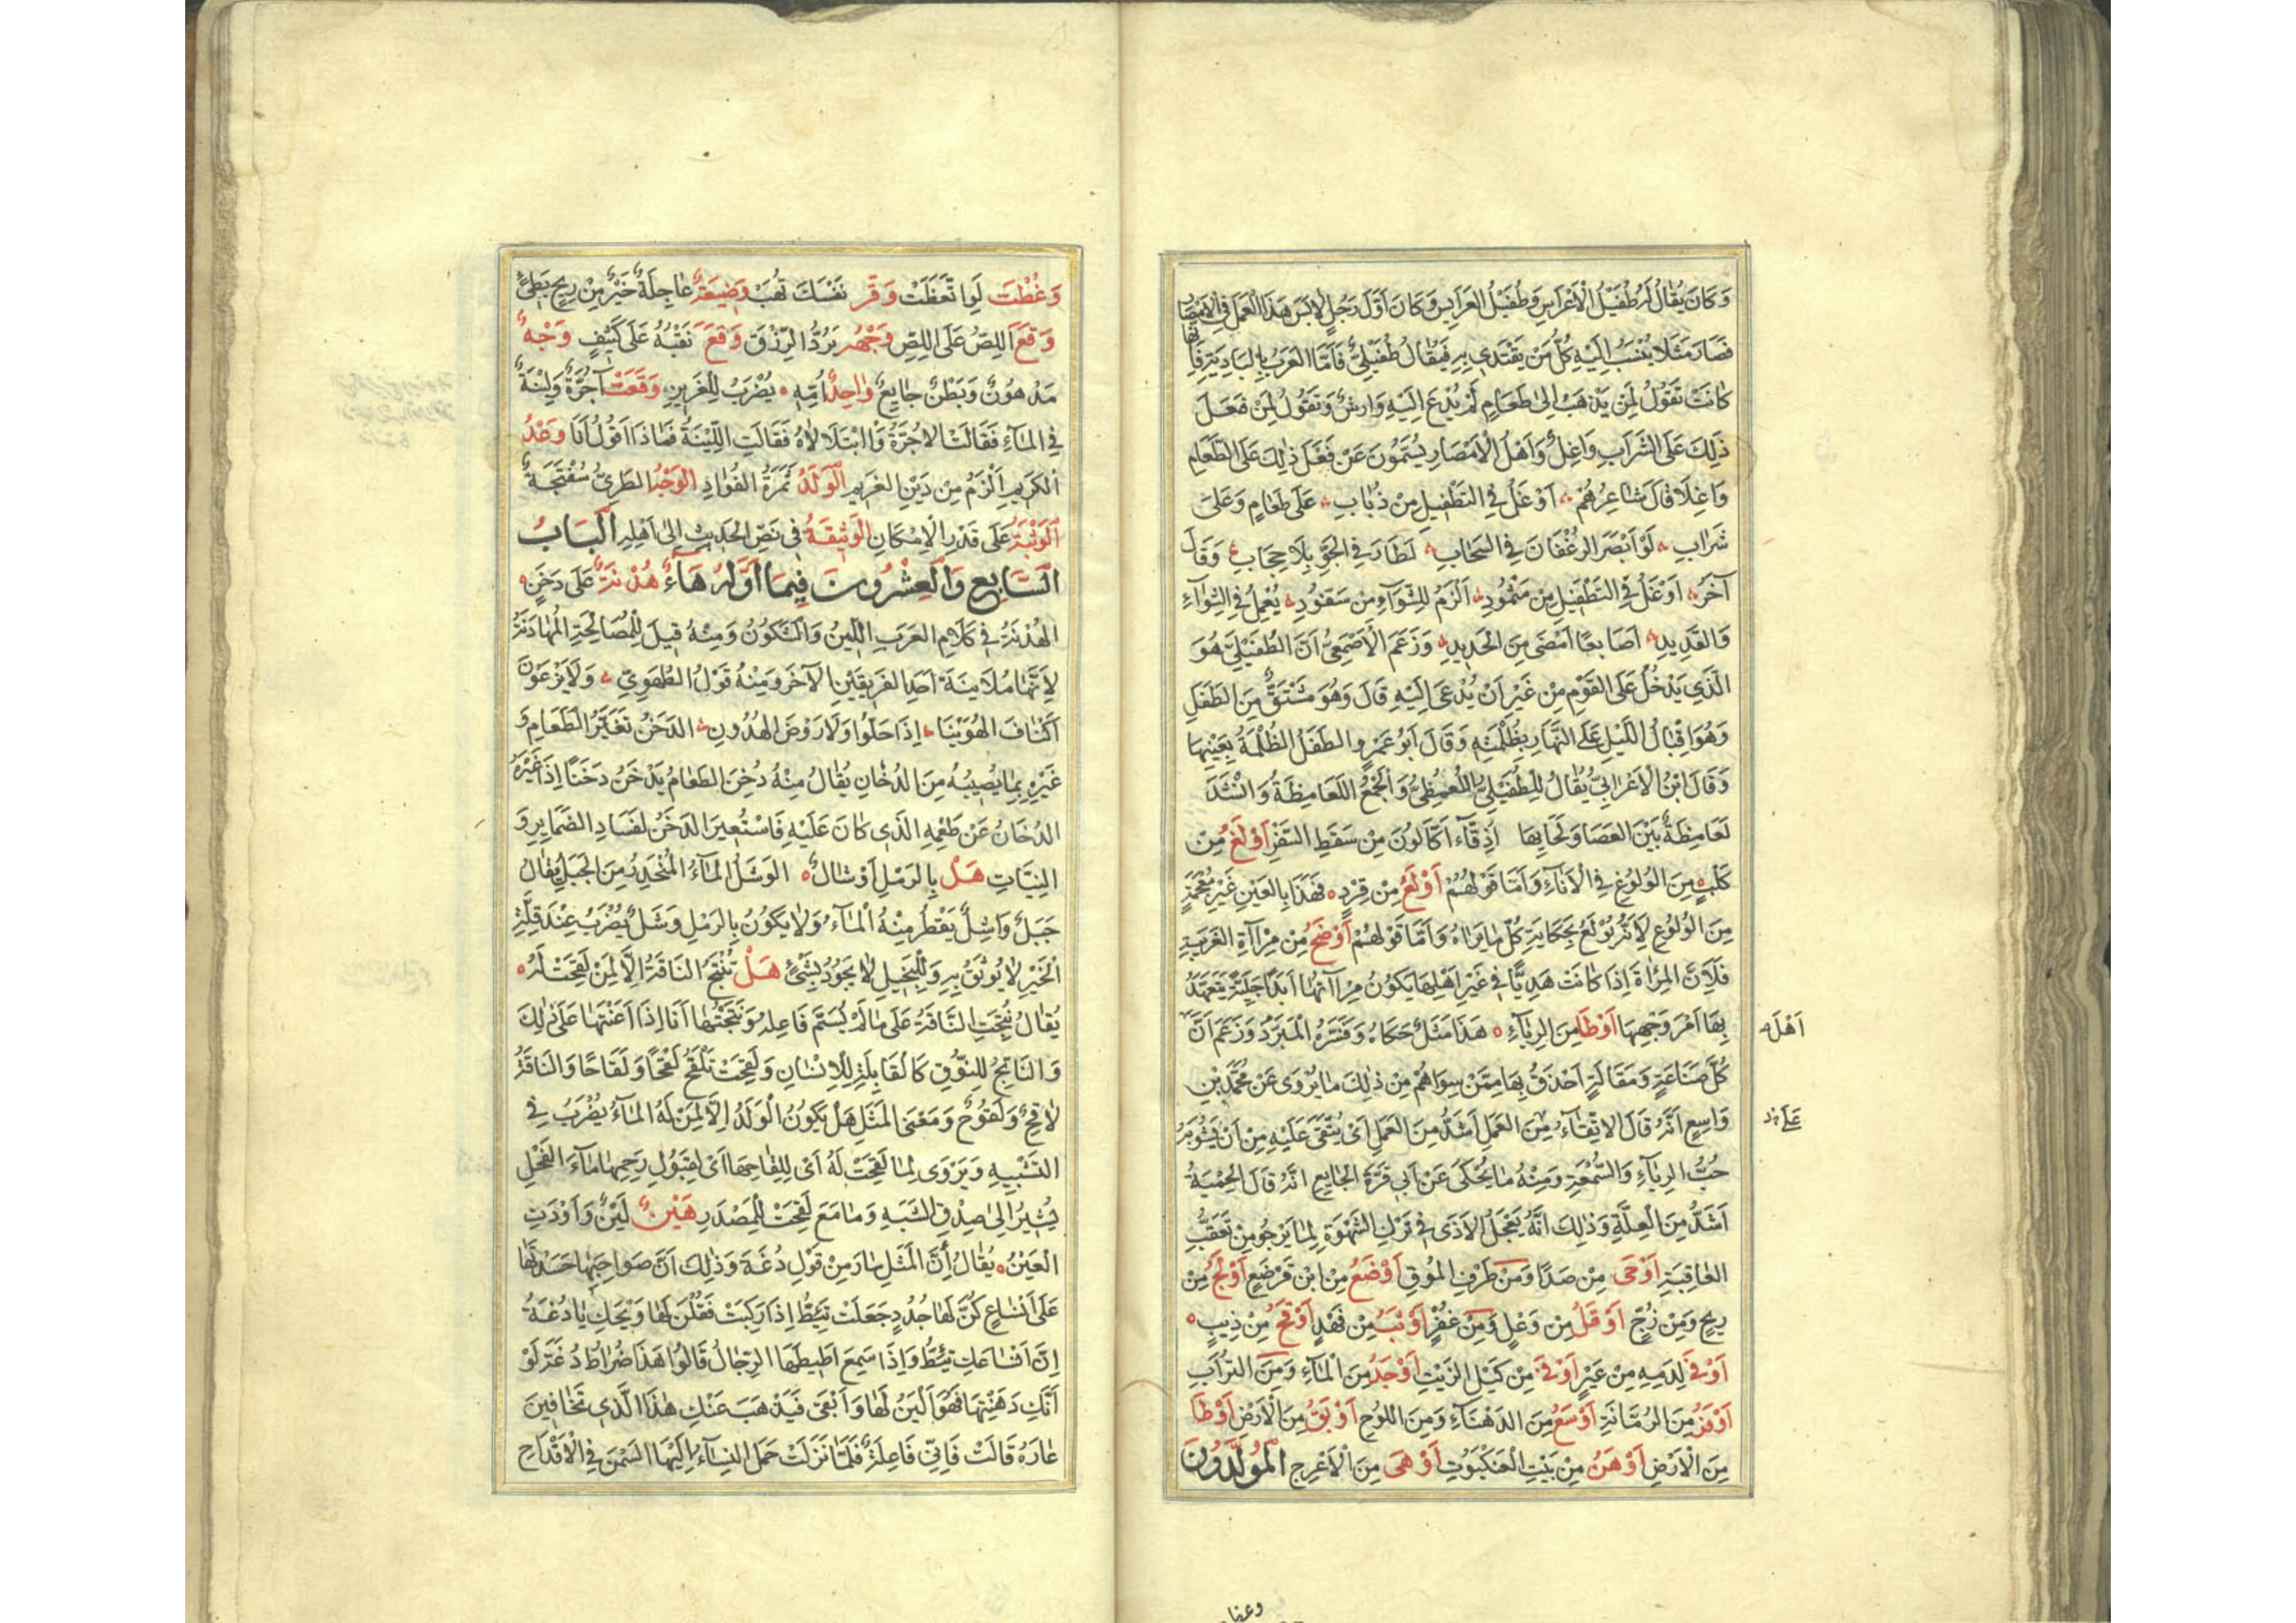 وَكَانَ يُقَالُ لَهُ طُفَيْلُ الْاَعْرَاسِ وَطُفَيْلُ الْعَرَايِسِ وَكَانَ اَوَّلَ رَجُلٍ لَابَسَ هَذَا الْعَمَلَ فِي الْاَمْصَارِ
فَصَارَ مَثَلًا يُنْسَبُ اِلَيْهِ كُلُّ مَنْ يَقْتَدِي بِهِ فَيُقَالُ طُفَيْلِيٌّ فَاَمَّا الْعَرَبُ بِالْبَادِيَةِ فَاِنَّهَا
كَانَتْ تَقُولُ لِمَنْ يَذْهَبُ اِلىٰ طَعَامٍ لَمْ يُدْعَ اِلَيْهِ وَارِشٌ وَتَقُولُ لِمَنْ فَعَلَ
ذٰلِكَ عَلَى الشَّرَابِ وَاغِلٌ وَاَهْلُ الْاَمْصَارِ يُسَمُّونَ مَنْ فَعَلَ ذٰلِكَ عَلَى الطَّعَامِ
وَاغِلًا قَالَ شَاعِرُهُمْ اَوْغَلُ فِي التَّطْفِيلِ مِنْ ذُبَابِ عَلَى طَعَامٍ وَعَلىَ
شَرَابِ لَوْ اَبْصَرَ الرُّغْفَانَ فِي السَّحَابِ لَطَارَ فِي الْجَوِّ بِلَا حِجَابِ وَقَالَ
آخَرُ اَوْغَلُ فِي التَّطْفِيلِ مِنْ مَثْمُودِ اَلْزَمُ لِلشِّوَآءِ مِنْ سَفُّودِ يُعْمِلُ فِي الشِّوَآءِ
وَالْقَدِيدِ اَصَابِعًا اَمْضَى مِنَ الْحَدِيدِ وَزَعَمَ الْاَصْمَعِيُّ اَنَّ الطُّفَيْلِيَّ هُوَ
الَّذِي يَدْخُلُ عَلَى الْقَوْمِ مِنْ غَيْرِ اَنْ يُدْعَى اِلَيْهِ قَالَ وَهُوَ مُشْتَقٌّ مِنَ الطَّفَلِ
وَهُوَ اِقْبَالُ اللَّيْلِ عَلَى النَّهَارِ بِظُلْمَتِهِ وَقَالَ اَبُو عَمْرٍو الطَّفَلُ الظُّلْمَةُ بِعَيْنِهَا
وَقَالَ ابْنُ الْاَعْرَابِيِّ يُقَالُ لِلطُّفَيْلِيِّ اللَّعْمَظِيُّ وَالْجَمْعُ اللَّعَامِظَةُ وَانْشَدَ
لَعَامِظَةٌ بَيْنَ الْعَصَا وَلِحَائِهَا اَدِقَّآءُ اَكَّالُونَ مِنْ سَقَطِ السَّفْرِ اَوْلَغُ مِنْ
كَلْبٍ مِنَ الْوُلُوغِ فِي الْاِنَآءِ وَاَمَّا قَوْلُهُمْ اَوْلَعُ مِنْ قِرْدٍ فَهَذَا بِالْعَيْنِ غَيْرِ مُعْجَمَةٍ
مِنَ الْوُلُوعِ لِاَنَّهُ يُوْلَعُ بِحِكَايَةِ كُلِّ مَا يَرَاهُ وَاَمَّا قَوْلُهُمْ اَوْضَحُ مِنْ مِرْآةِ الْغَرِيبَةِ
فَلِاَنَّ الْمَرْاَةَ اِذَا كَانَتْ هَدِيًّا فِي غَيْرِ اَهْلِهَا يَكُونُ مِرْآتُهَا اَبَدًا جَلِيَّةً يَتَعَهَّدُ
بِهَا اَمْرَ وَجْهِهَا اَوْطَا مِنَ الرِّيَآءِ هَذَا مَثَلٌ حَكَاهُ وَفَسَّرَهُ الْمُبَرَّدُ وَزَعَمَ اَنَّ
اَهْلَ
كُلِّ صَنَاعَةٍ وَمَقَالَةٍ اَحْذَقُ بِهَا مِمَّنْ سِوَاهُمْ مِنْ ذٰلِكَ مَا يُرْوَى عَنْ مُحَمَّدِ بْنِ
وَاسِعٍ اَنَّهُ قَالَ الْاِتِّقَآءُ مِنَ الْعَمَلِ اَشَدُّ مِنَ الْعَمَلِ اَيْ يُتَّقَى عَلَيْهِ مِنْ اَنْ يَشُوبَهُ
عَلَى
حُبُّ الرِّيَآءِ وَالسُّمْعَةِ وَمِنْهُ مَا يُحْكَى عَنْ اَبِي قُرَّةَ الْجَايِعِ انَّهُ قَالَ الْحِمْيَةُ
اَشَدُّ مِنَ الْعِلَّةِ وَذٰلِكَ اَنَّهُ يَتَعَجَّلُ الْاَذَى فِي تَرْكِ الشَّهْوَةِ لِمَا يَرْجُو مِنْ تَعَقُّبِ
الْعَاقِبَةِ اَوْحَى مِنْ صَدًا وَمِنْ طَرْفِ الْمُوقِ اَوْضَعُ مِنْ ابْنِ قَرْضَعٍ اَوْلَجُ مِنْ
رِيحٍ وَمِنْ زُجٍّ اَوْقَلُ مِنْ وَعْلٍ وَمِنْ غُفْرٍ اَوْثَبُ مِنْ فَهْدٍ اَوْقَحُ مِنْ ذِيبٍ
اَوْفَى لِدَمِهِ مِنْ عَيْرٍ اَوْفَى مِنْ كَيْلِ الزَّيْتِ اَوْجَدُ مِنَ الْمَآءِ وَمِنَ التُّرَابِ
اَوْفَرُ مِنَ الرُّمَّانَةِ اَوْسَعُ مِنَ الدَّهْنَآءِ وَمِنَ اللُّوحِ اَوْثَقُ مِنَ الْاَرْضِ اَوْطَا
مِنَ الْاَرْضِ اَوْهَنُ مِنْ بَيْتِ الْعَنْكَبُوتِ اَوْهَى مِنَ الْاَعْرِجِ الْمُوَلَّدُونَ
وعظت
وَعُظْتَ لَوِ اتَّعَظَتْ وَقِّر نَفْسَكَ تُهَبْ وَضِيعَةٌ عَاجِلَةٌ خَيْرٌ مِنْ رِبْحٍ بَطِيٍّ
وَقَعَ اللِّصُّ عَلَى اللِّصِّ وَجْهُهُ يَرُدُّ الرِّزْقَ وَقَعَ نَقْبُهُ عَلَى كَنِيفٍ وَجْهٌ
مَدْهُونٌ وَبَطْنٌ جَايِعٌ وَاحِدُ اُمِّهِ يُضْرَبُ لِلْعَزِيزِ وَقَعَتْ آجُرَّةٌ وَلَبِنَةٌ
فِي الْمَآءِ فَقَالَتْ الاجُرَّةُ وَا ابْتِلَالَاهُ فَقَالَتِ اللَّبِنَةُ فَمَاذَا اَقُولُ اَنَا وَعْدُ
الْكَرِيمِ اَلْزَمُ مِنْ دَيْنِ الْغَرِيمِ الْوَلَدُ ثَمَرَةُ الْفُوَادِ الْوَجْهُ الطَّرِيُّ سُفْتَجَةٌ
اَلْوَثْبَةُ عَلَى قَدْرِ الْاِمْكَانِ الْوَثِيقَةُ فِي نَصِّ الْحَدِيثِ اِلىٰ اَهْلِهِ الْبَابُ
السَّابِعُ وَالْعِشْرُونَ فِيمَا اَوَّلُهُ هَآءٌ هُدْنَةٌ عَلَى دَخَنٍ
الْهُدْنَةُ فِي كَلَامِ الْعَرَبِ اللِّينُ وَالسُّكُونُ وَمِنْهُ قِيلَ لِلْمُصَالَحَةِ الْمُهَادَنَةُ
لِاَنَّهَا مُلَايَنَةُ اَحَدِ الْفَرِيقَيْنِ الْآخَرَ وَمِنْهُ قَوْلُ الطُّهَوِيِّ وَلَا يَرْعَوْنَ
اَكْنَافَ الْهُوَيْنَا اِذَا حَلُّوا وَلَا رَوْضَ الْهُدُونِ الدَّخَنُ تَغَيُّرُ الطَّعَامِ وَ
غَيْرِهِ بِمَا يُصِيبُهُ مِنَ الدُّخَانِ يُقَالُ مِنْهُ دُخِنَ الطَّعَامُ يَدْخَنُ دَخَنًا اِذَا غَيَّرَهُ
الدُّخَانُ عَنْ طَعْمِهِ الَّذِي كَانَ عَلَيْهِ فَاسْتُعِيرَ الدَّخَنُ لِفَسَادِ الضَّمَايِرِ وَ
النِّيَّاتِ هَلْ بِالرَّمْلِ اَوْشَالٌ الْوَشَلُ الْمَآءُ الْمُنْحَدِرُ مِنَ الْجَبَلِ يُقَالُ
جَبَلٌ وَاشِلٌ يَقْطُرُ مِنْهُ الْمَآءُ وَلَا يَكُونُ بِالرَّمْلِ وَشَلٌ يُضْرَبُ عِنْدَ قِلَّةِ
الْخَيْرِ لَا يُوثَقُ بِهِ وَلِلْبَخِيلِ لَا يَجُودُ بِشَيْءٍ هَلْ تُنْتَجُ النَّاقَةُ اِلَّا لِمَنْ لَقِحَتْ لَهُ
يُقَالُ نُتِجَتِ النَّاقَةُ عَلَى مَا لَمْ يُسَمَّ فَاعِلُهُ وَنَتَجْتُهَا اَنَا اِذَا اَعَنْتَهَا عَلَى ذٰلِكَ
وَالنَّاتِجُ لِلنُّوقِ كَالْقَابِلَةِ لِلْاِنْسَانِ وَلَقِحَتْ تَلْقَحُ لَقْحًا وَلَقَاحًا وَالنَّاقَةُ
لَاقِحٌ وَلَقُوحٌ وَمَعْنَى الْمَثَلِ هَلْ يَكُونُ الْوَلَدُ اِلَّا لِمَنْ لَهُ الْمَآءُ يُضْرَبُ فِي
التَّشْبِيهِ وَيُرْوَى لِمَا لَقِحَتْ لَهُ اَيْ لِلِقَاحِهَا اَيْ لِقَبُولِ رَحِمِهَا مَآءَ الْفَحْلِ
يُشِيرُ اِلىٰ صِدْقِ الشَّبَهِ وَمَا مَعَ لَقِحَتْ لِلْمَصْدَرِ هَيْنٌ لَيْنٌ وَاَوْدَتِ
الْعَيْنُ يُقَالُ اِنَّ الْمَثَلَ سَارَ مِنْ قَوْلِ دُغَةَ وَذٰلِكَ اَنَّ صَوَاحِبَهَا حَسَدْنَهَا
عَلَى اَنْسَاعٍ كُنَّ لَهَا جُدُدٍ جَعَلَتْ تَئِطُّ اِذَا رَكِبَتْ فَقُلْنَ لَهَا وَيْحَكِ يَا دُغَةُ
اِنَّ اَنْسَاعَكِ تَئِطُّ وَاِذَا سَمِعَ اَطِيطَهَا الرِّجَالُ قَالُوا هَذَا ضُرَاطُ دُغَةَ لَوْ
اَنَّكِ دَهَنْتِهَا فَهُوَ اَلْيَنُ لَهَا وَاَبْقَى فَيَذْهَبَ عَنْكِ هٰذَا الَّذِي تَخَافِينَ
عَارَهُ قَالَتْ فَاِنِّي فَاعِلَةٌ فَلَمَّا نَزَلَتْ حَمَلَ النِّسَآءُ اِلَيْهَا السَّمْنَ فِي الْاَقْدَاحِ